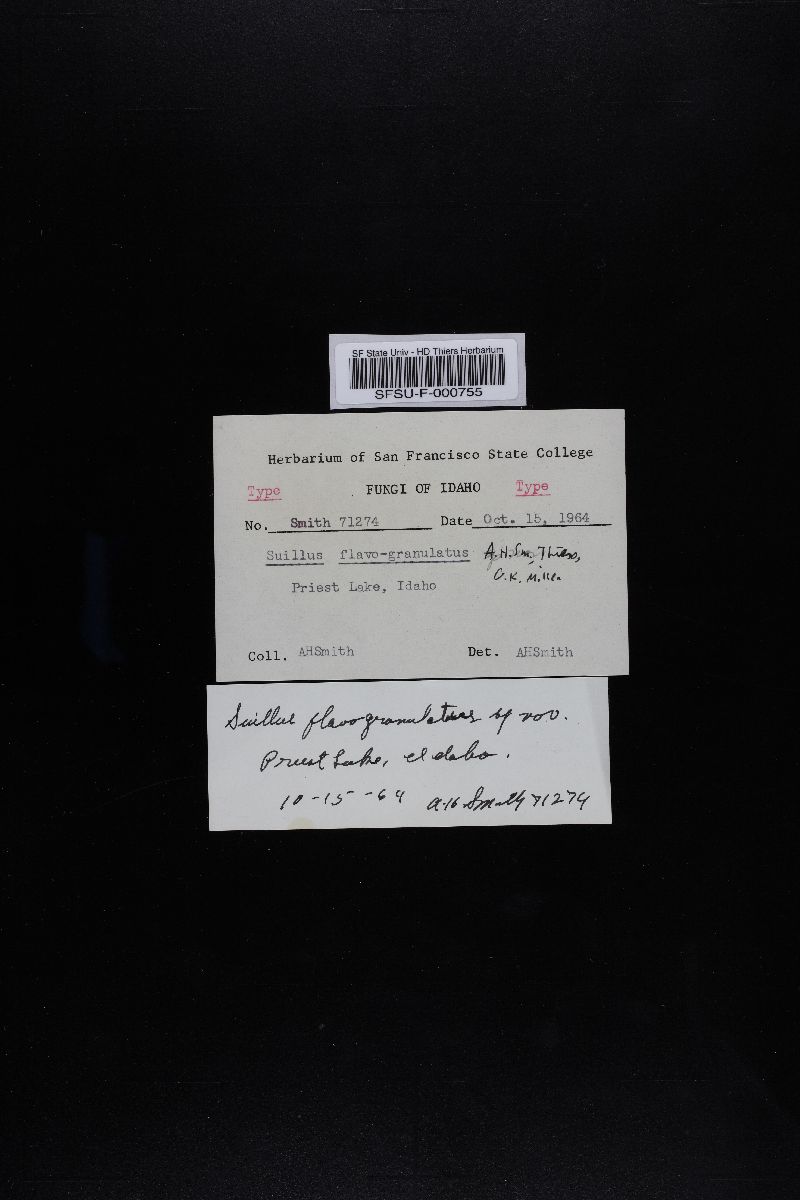 SF State Univ - HD Thiers Herbarium
SFSU-F-000755
Herbarium of San Francisco State College
Type FUNGI OF IDAHO Type
No. Smith 71274 Date Oct. 15, 1964
Suillus flavo-granulatus A.H.Sm, Thiers,
O.K. Miller
Priest Lake, Idaho
Coll. AHSmith Det. AHSmith
Suillus flavogranulatus sp nov.
Priest Lake, Idaho.
10-15-64 AH Smith 71274